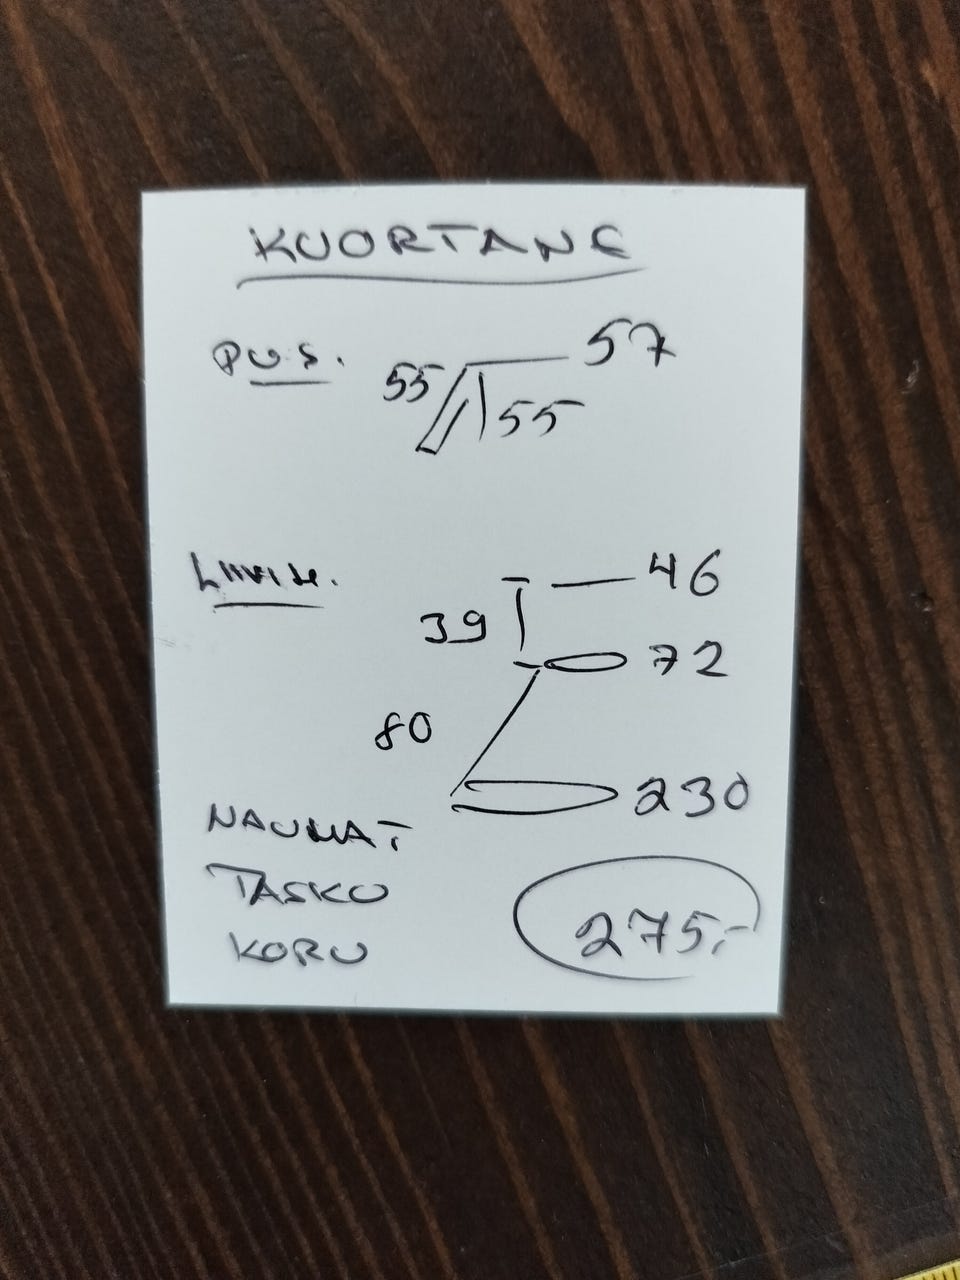 KUORTANE
PUS. 55 57
55
LIIVIH. 46
39
72
80
230
NAUHAT
TASKU
KORU 275,-